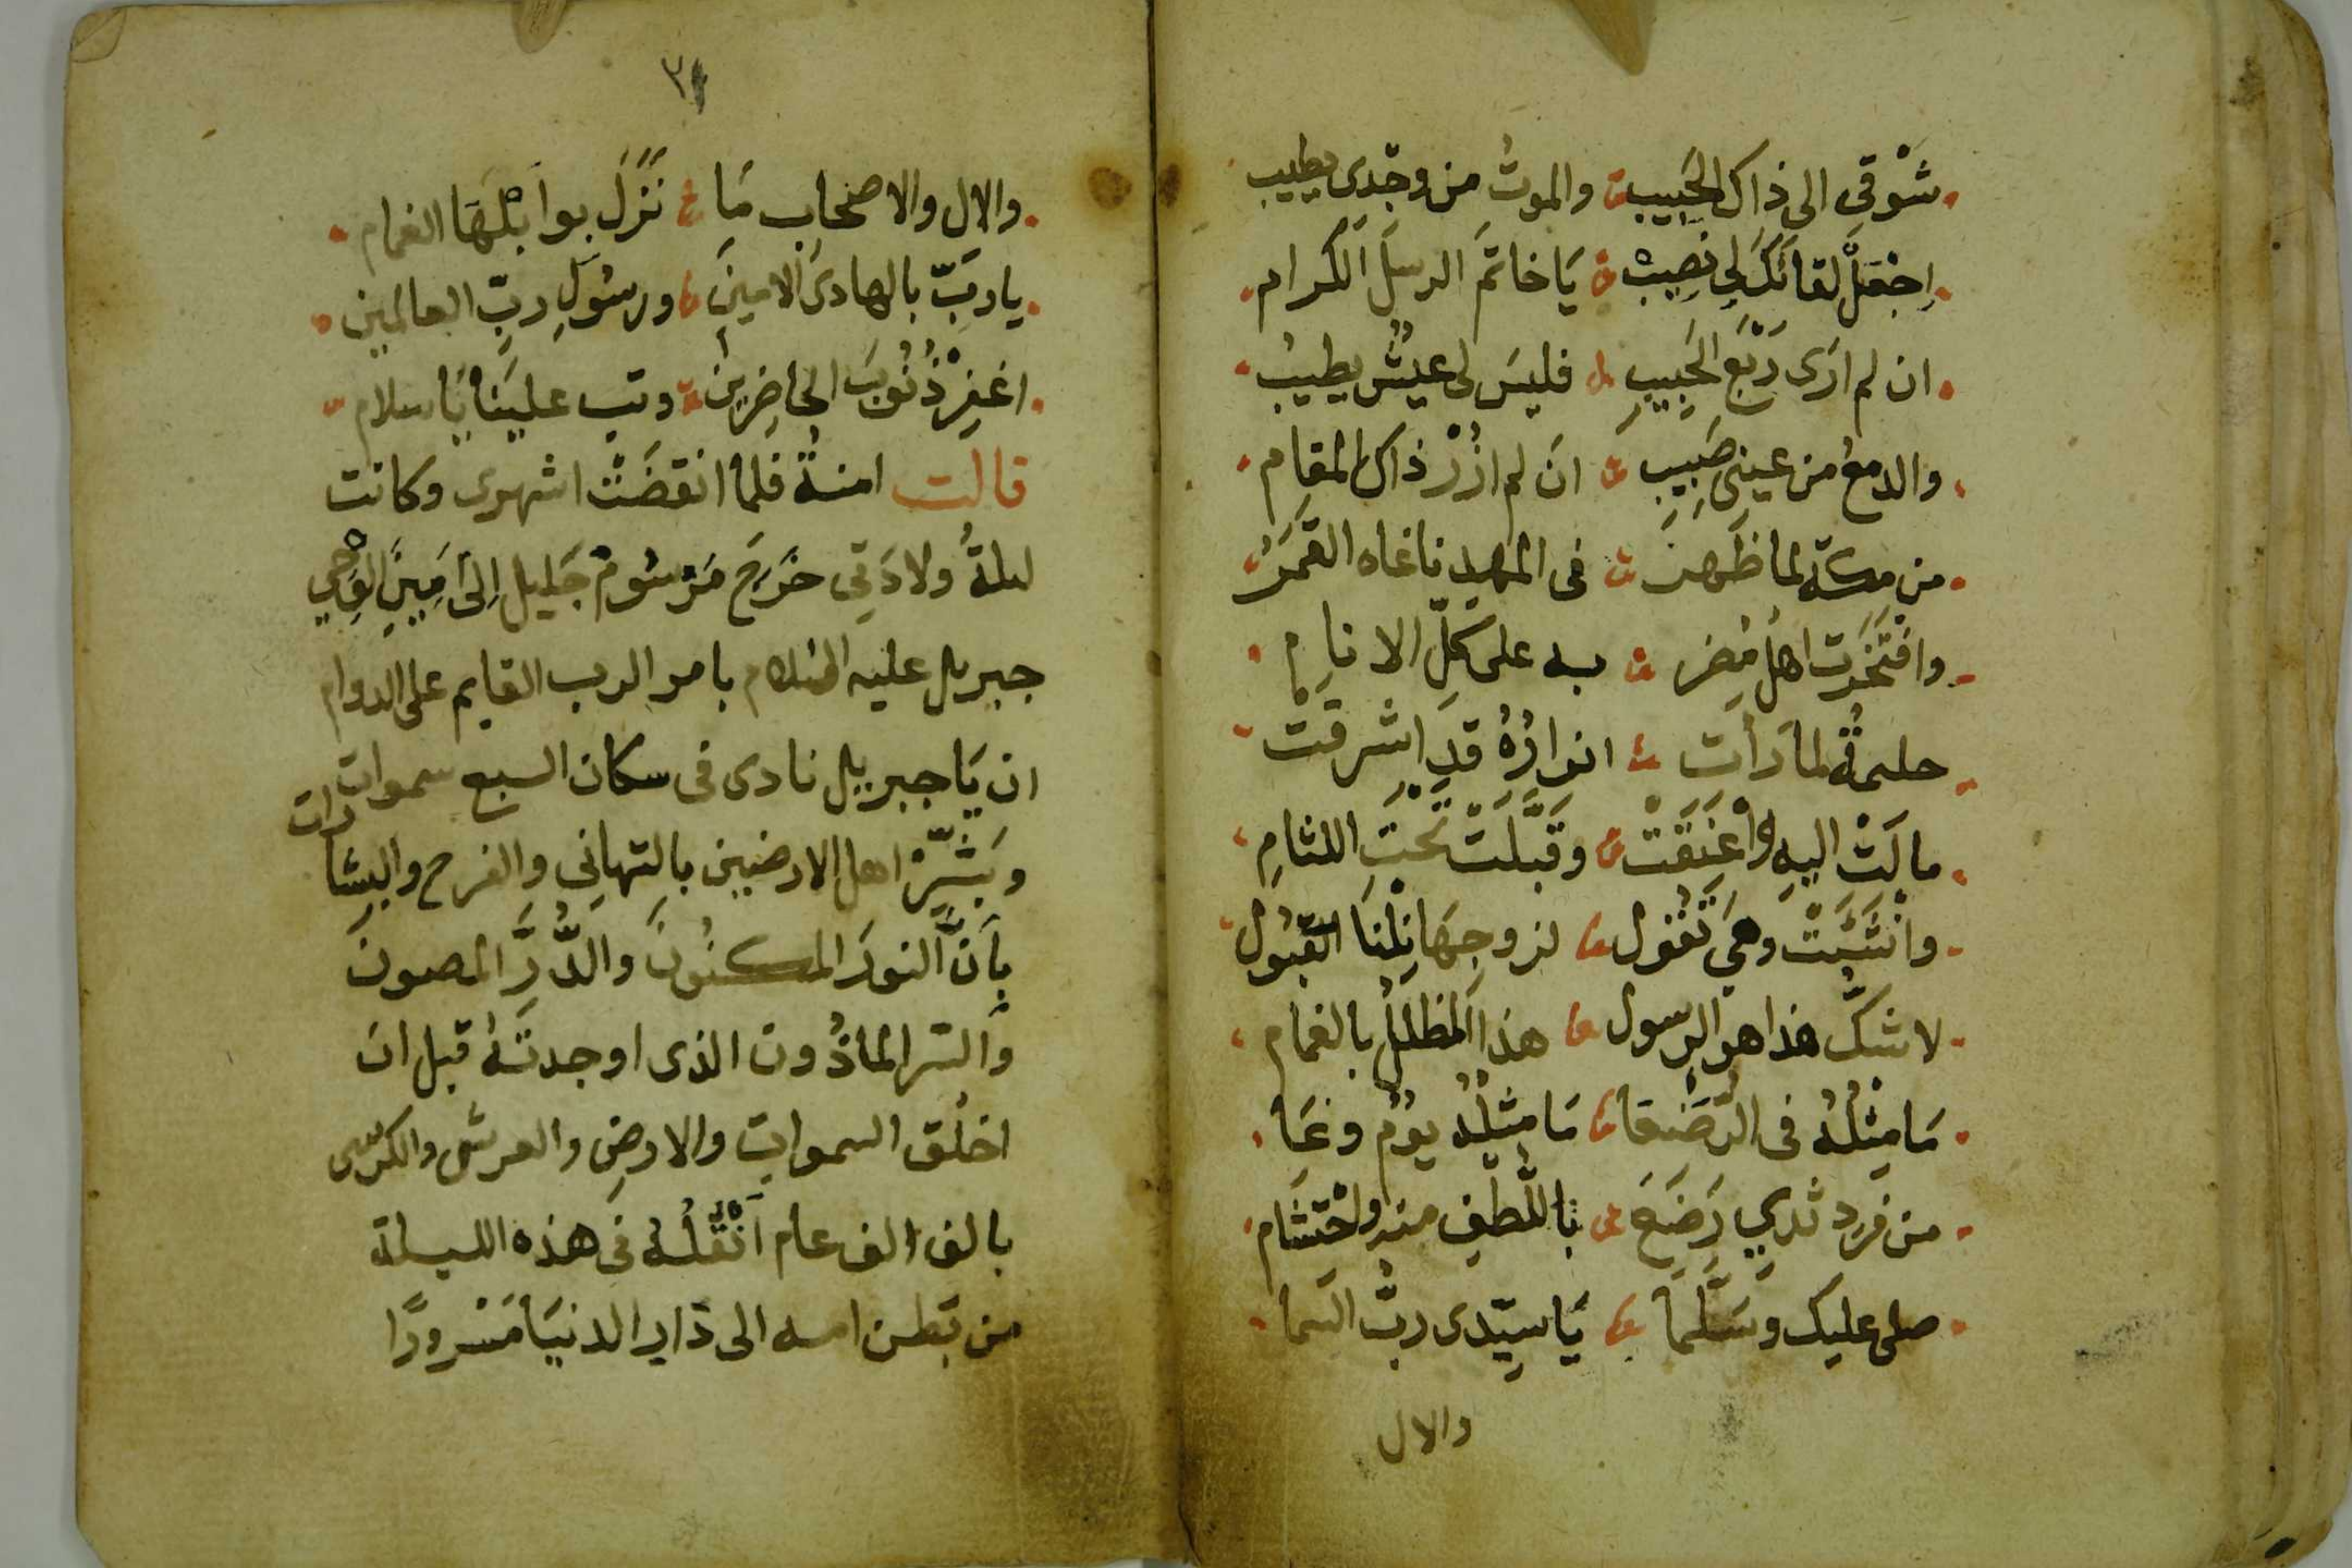 شَوْقِي الى ذاك الحَبِيب والموتُ من وجْدِي يطيب
اِجْعَلْ لقائَكَ لِي نصِيبْ يَا خاتَم الرسلَ الكرام
ان لم ارَى رَبْعَ الحَبِيبِ فليسَ لى عيشٌ يطيبُ
والدمعُ من عينِى صَبِيبِ انَ لم ازُرْ ذاك المقام
من مكة لما ظَهرْ فى المهدِ ناغاه القمَرْ
وافْتَخَرت اهلُ مُضر به على كلِّ الانامِ
حليمةٌ لما رأتْ انوارُهُ قدِ اشرقتْ
مالَتْ اليهِ واعْتَنَقَتْ وقَبَّلَتْ تَحْتَ اللثامِ
وانْثَنَتْ وهَي تَقُول لزوجِهَا نِلْنَا القبُول
لا شكَّ هذا هو الرسول هذا المظللُ بالغمام
مَا مِثْلُهُ فى الرُّضَّعَا مَا مثلُه يومٌ وعَا
من فرد ثَديٍ رَضَعَ باللُّطفِ منه واحْتشَام
صلى عليك وسَلَّمَا يَا سيّدى ربُّ السَما
والال
والالِ والاصْحابِ مَا نَزَلَ بوابْلهَا الغمام
يا ربّ بالهادى الامينِ ورسُولِ ربّ العالمين
اغفِرْ ذُنُوبَ الحاضِرِين وتب علينَا يَا سلام
قالت امنةُ فلما انقضَتْ اشهرى وكانت
ليلةُ ولادَتِى خَرَجَ مَرْسُومٌ جَليل اِلىَ اَمِينِ الوَحْي
جبريل عليه السلام بامر الرب القايم على الدوام
ان يَا جبريل نادى فى سكان السبع سموات
وبَشِّرْ اهل الارضيين بالتهانِي والفرح والبشارات
بِأنَّ النورَ المكنُونَ والدُّرَّ المصونَ
والسَر الماذُون الذى اوجدتهُ قبل ان
اخلُق السموات والارضِ والعرش والكرسى
بالف الف عام اَنْقُلُهُ فى هذه الليلة
من بَطن امه الى دَار الدنيَا مَسْرورًا